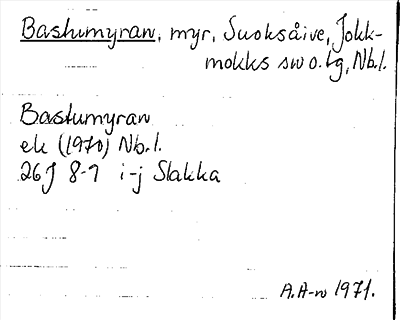 Bastumyran, myr, Suoksåive, Jokk-
mokks sw o. tg, Nb.l.
Bastumyran
ek (1970) Nb.l.
26J 8-9 i-j Slakka
A.A-n 1971.